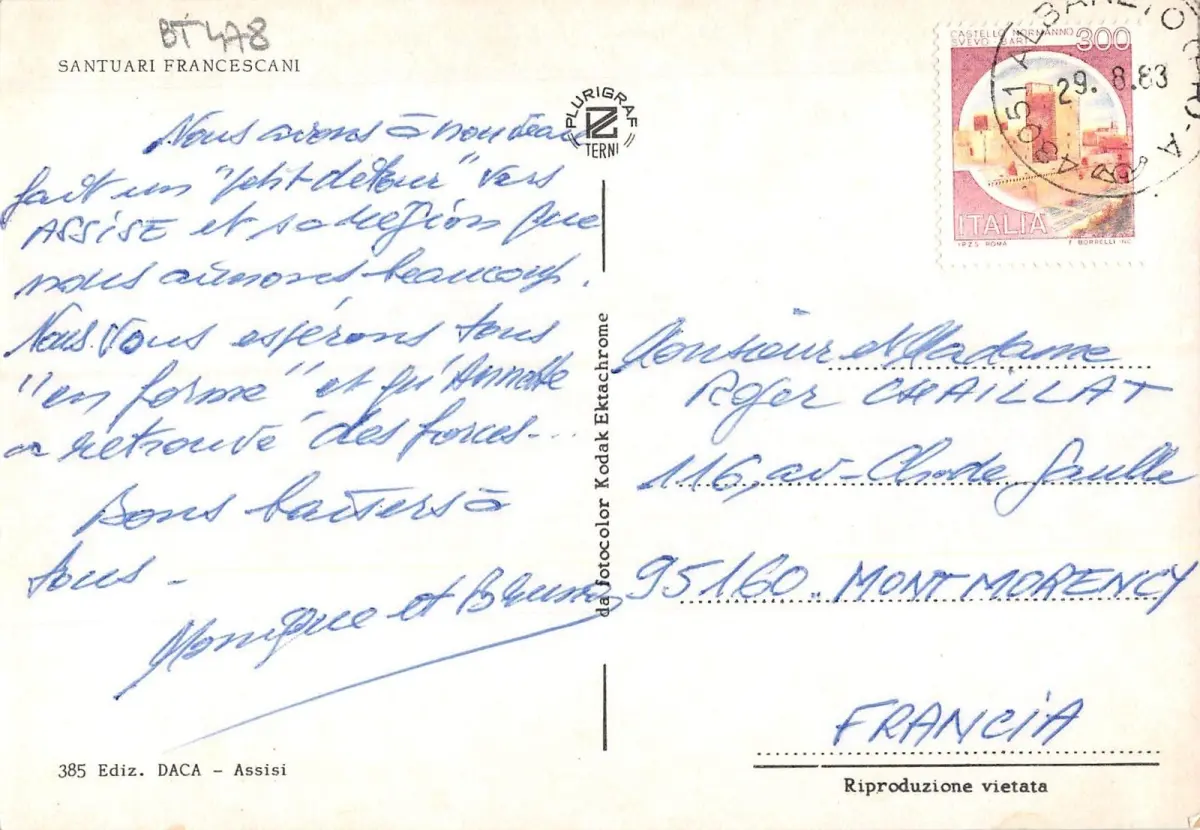 BT 4A8
SANTUARI FRANCESCANI
Nous avons à nouveau
fait un "petit détour" vers
ASSISE et sa région que
nous aimons beaucoup.
Nous vous espérons tous
"en forme" et qu'Annette
a retrouvé des forces...
Bons baisers à
tous -
Monique et Bruno
385 Ediz. DACA - Assisi
PLURIGRAF
TERNI
da fotocolor Kodak Ektachrome
CASTELLO NORMANNO
SVEVO - BARI
300
ITALIA
I.P.Z.S. ROMA
F. BORRELLI INC.
29. 8.83
Monsieur et Madame
Roger CHAILLAT
116, av- Ch de Gaulle
95160 .. MONTMORENCY
FRANCIA
Riproduzione vietata